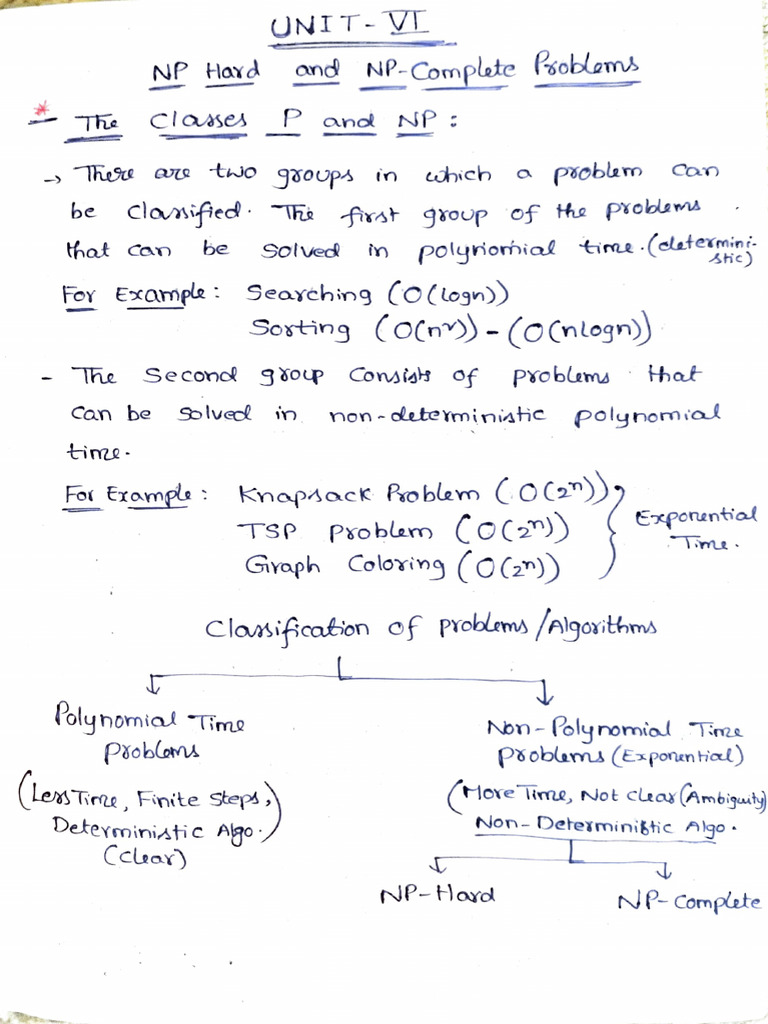 UNIT-VI
NP Hard and NP-Complete Problems
* The Classes P and NP :
→ There are two groups in which a problem can
be classified. The first group of the problems
that can be solved in polynomial time. (determini-
stic)
For Example : Searching (O(logn))
Sorting (O(n²)) - (O(nlogn))
- The Second group consists of problems that
can be solved in non-deterministic polynomial
time.
For Example : Knapsack Problem (O(2ⁿ))
TSP problem (O(2ⁿ))
Graph Coloring (O(2ⁿ))
Exponential
Time.
Classification of problems/Algorithms
Polynomial Time
problems
(Less Time, Finite Steps,
Deterministic Algo.)
(clear)
Non-Polynomial Time
problems (Exponential)
(More Time, Not clear (Ambiguity)
Non-Deterministic Algo.
NP-Hard
NP-Complete